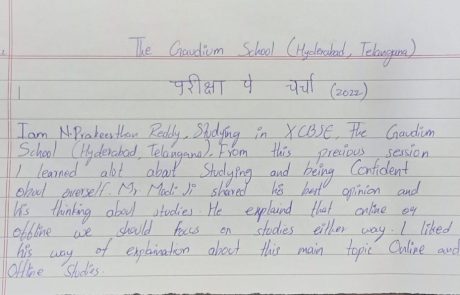 The Gaudium School (Hyderabad, Telangana)
परीक्षा पे चर्चा (2022)
I am N. Prakeerthan Reddy, Studying in X CBSE, The Gaudium
School (Hyderabad, Telangana). From this previous session
I learned abt about Studying and being Confident
about overself. Mr Modi Ji shared his best opinion and
his thinking about studies. He explaind that online or
offline we should focus on studies either way. I liked
his way of explaination about this main topic Online and
Offline Studies.